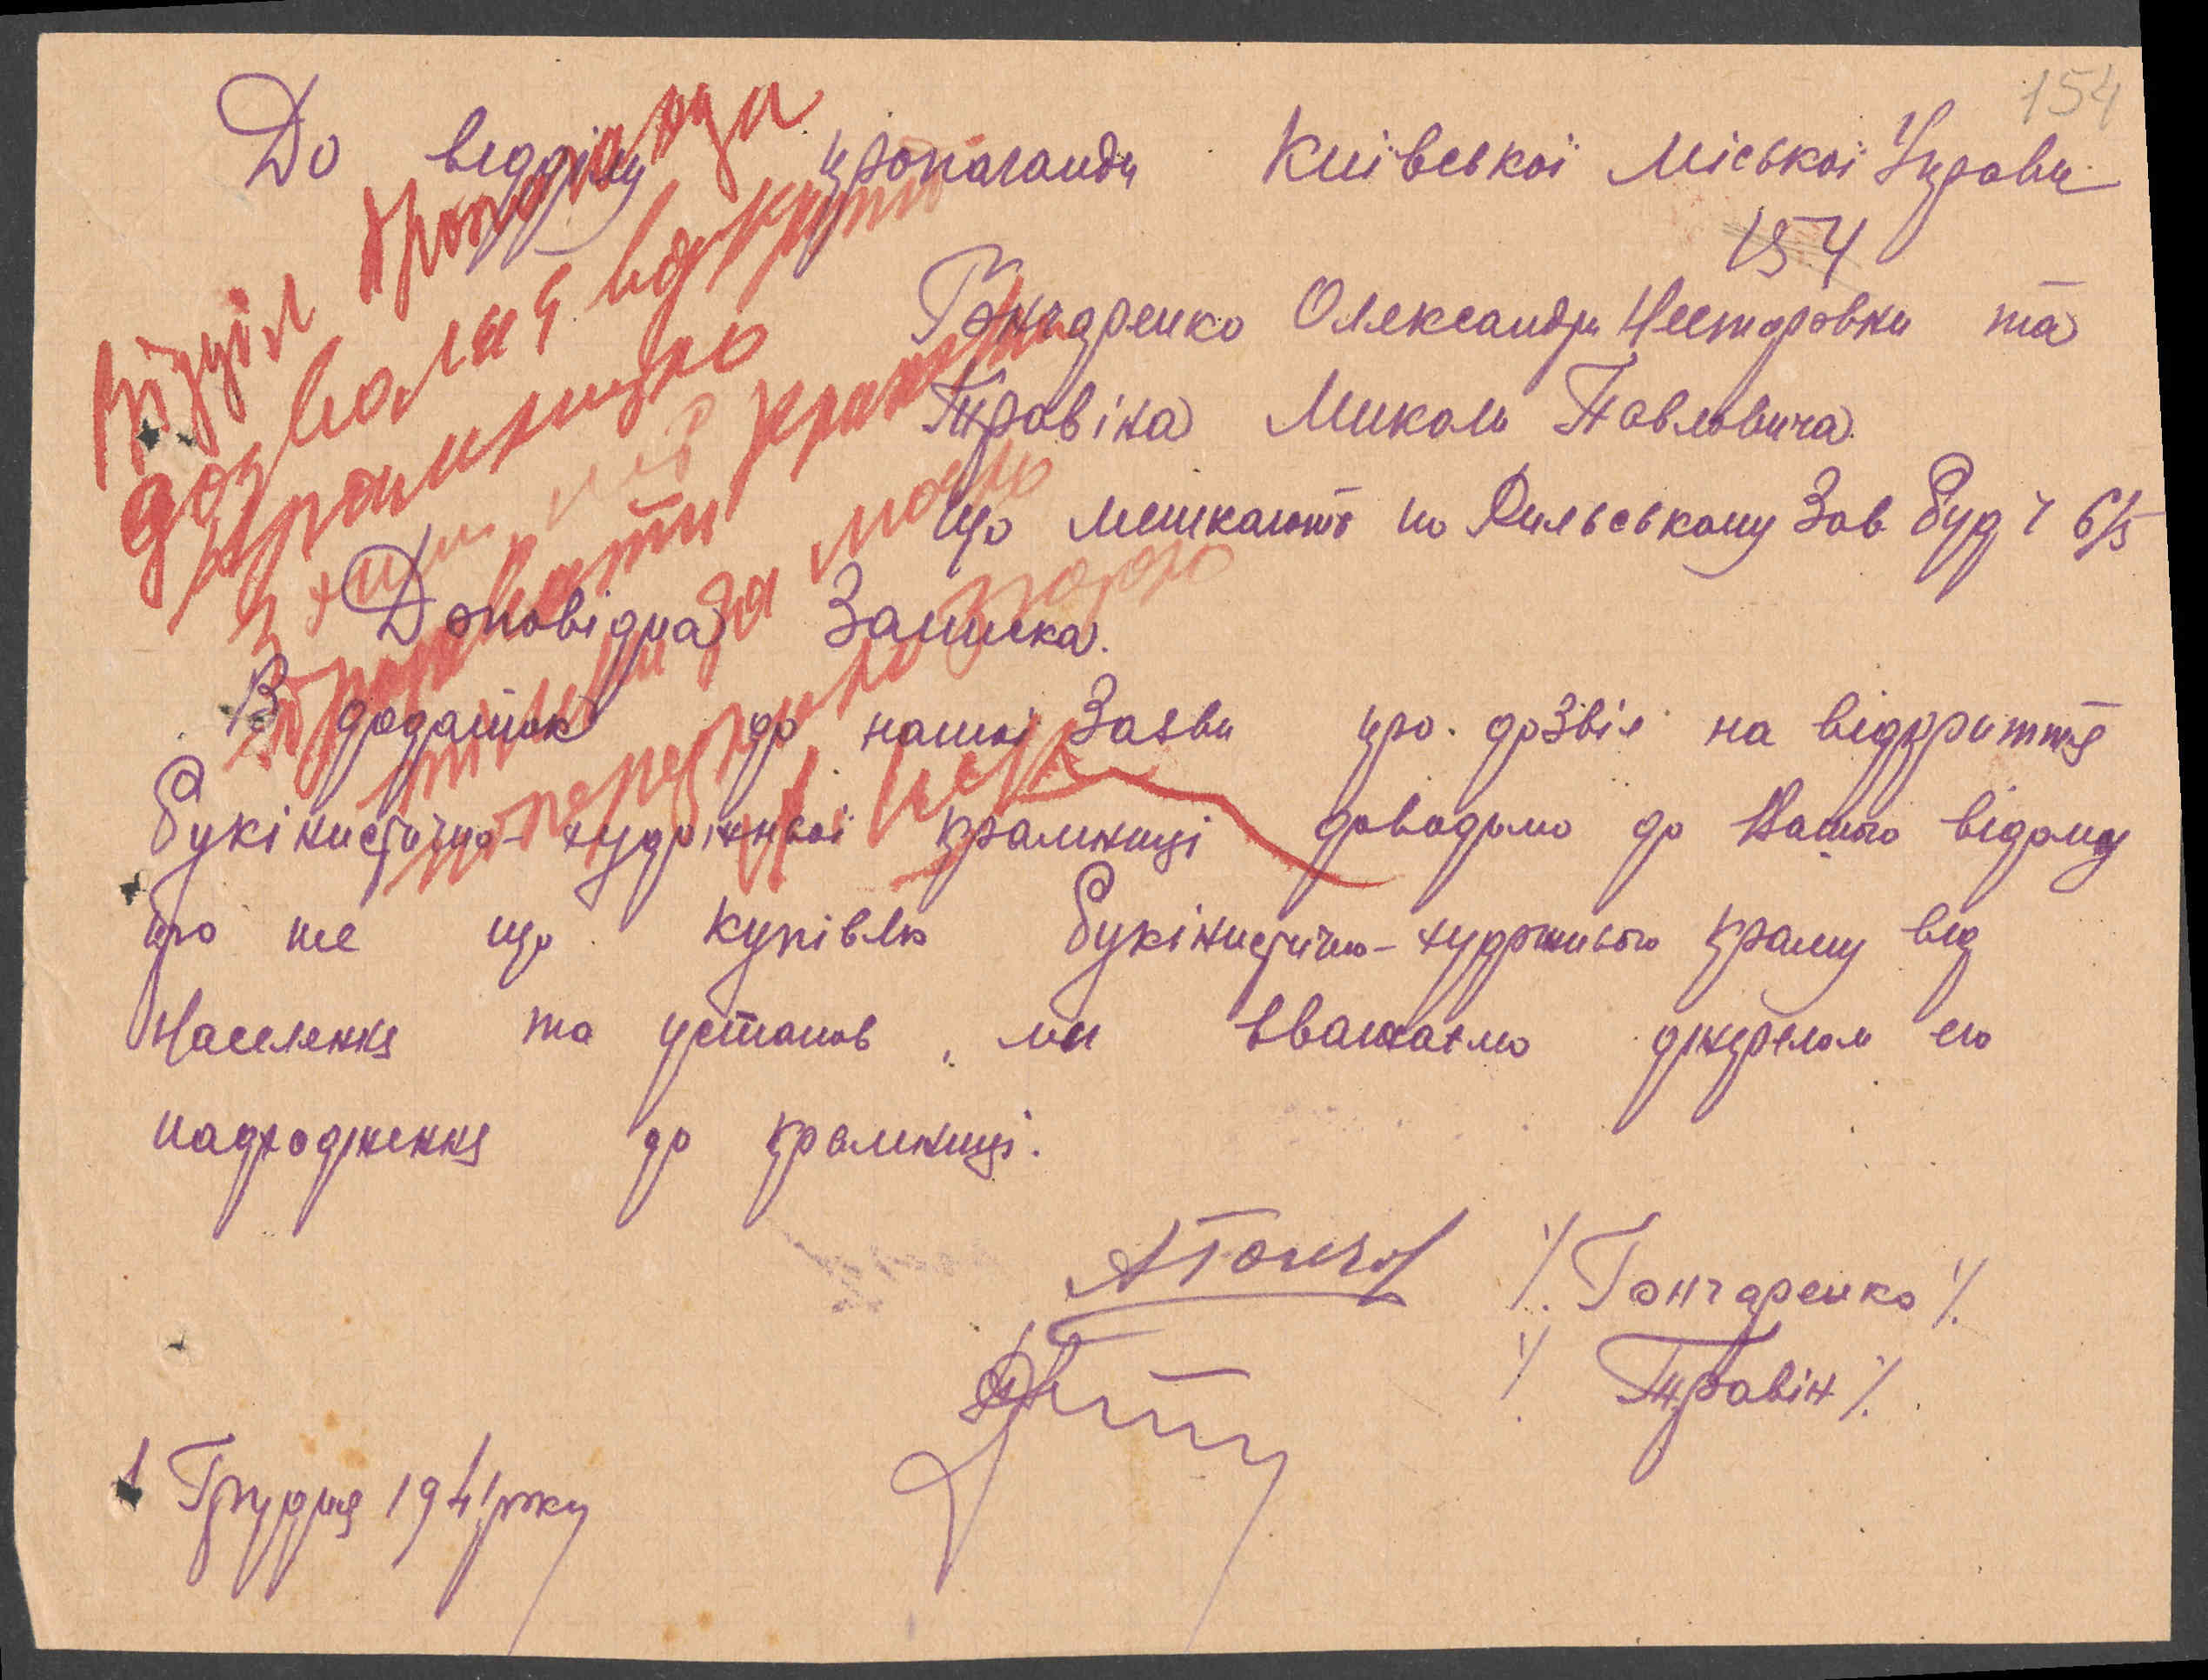 154
До відділу пропаганди Київської Міської Управи
154
Гончаренко Олександри Несторовни та
Травіна Миколи Павловича
що мешкають по Рильському Зав буд ч 6/5
Доповідна Записка.
В додаток до нашої Заяви про дозвіл на відкриття
букіністично-художньої крамниці доводимо до Вашого відому
про те що купівлю букіністично-художнього краму від
Населення та установ, ми вважаємо джерелом його
надходження до крамниці.
АГонча /. Гончаренко /.
/. Травін /.
1 Грудня 1941 року
Відділ пропаганди
дозволяє відкрити
крамницю
за моєю